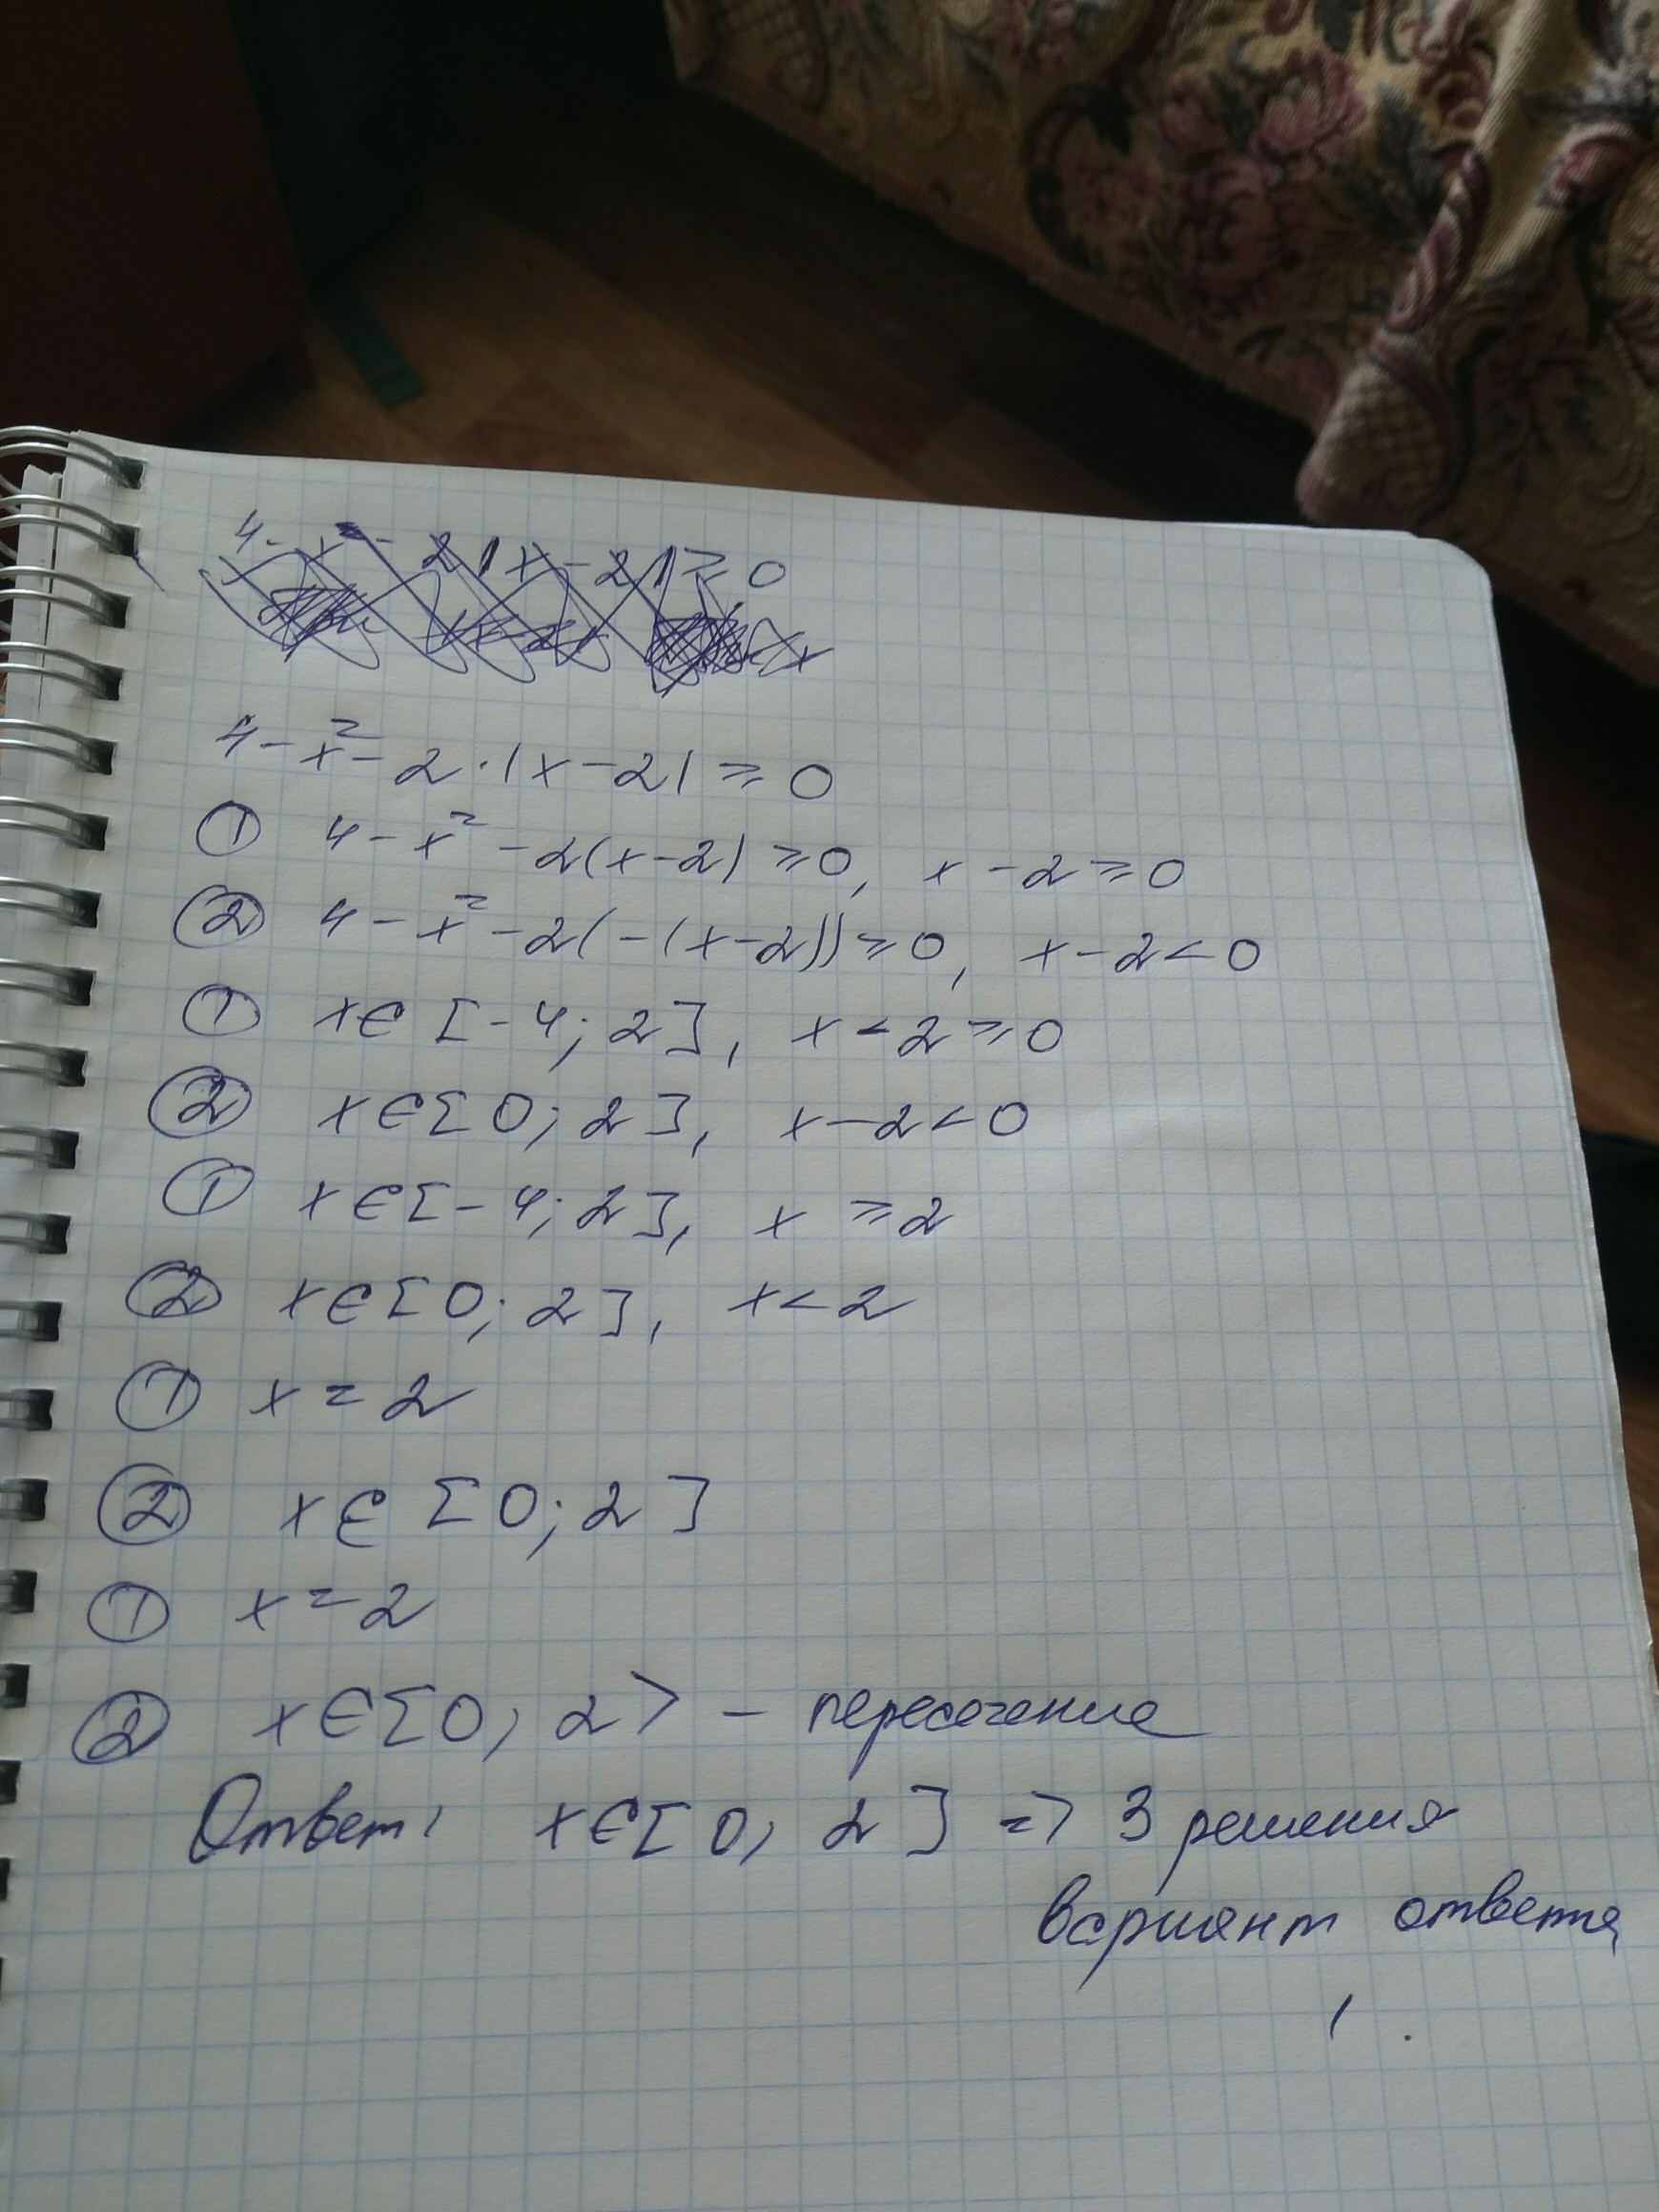 4-x²-2|x-2|≥0
4-x²-2·|x-2|≥0
① 4-x²-2(x-2)≥0, x-2≥0
② 4-x²-2(-(x-2))≥0, x-2<0
① x∈[-4;2], x-2≥0
② x∈[0;2], x-2<0
① x∈[-4;2], x≥2
② x∈[0;2], x<2
① x=2
② x∈[0;2]
① x=2
② x∈[0;2> - пересечение
Ответ: x∈[0;2] => 3 решения
вариант ответа
1.